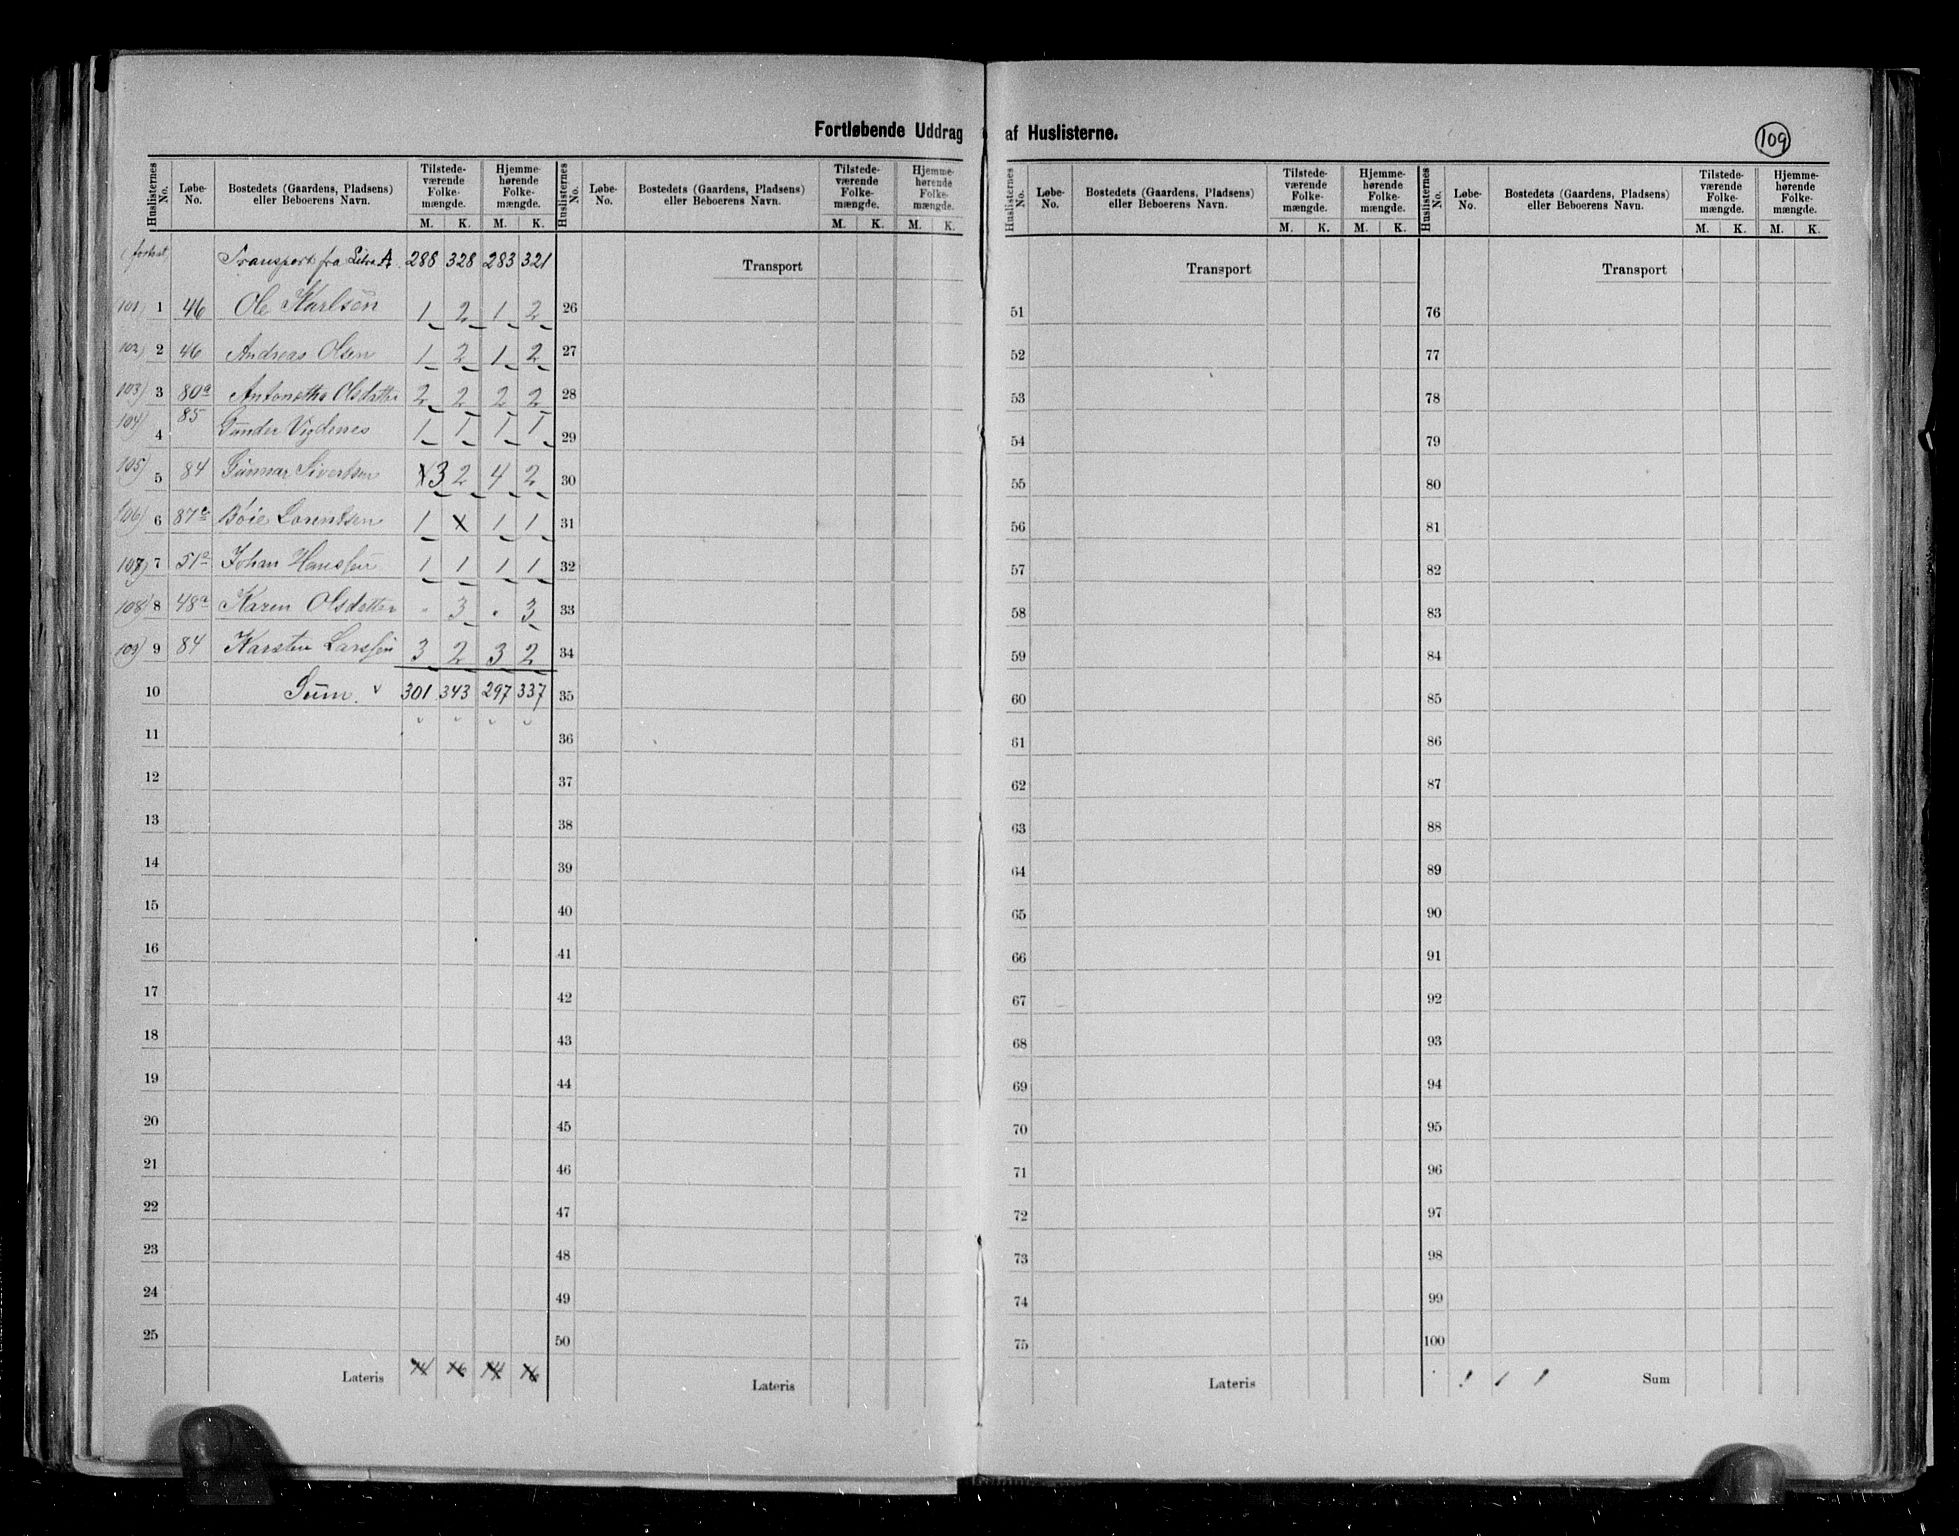 Fortløbende Uddrag af Huslisterne.
109
Huslisternes No. Løbe-No. Bostedets (Gaardens, Pladsens) eller Beboerens Navn. Tilstede-værende Folke-mængde. M. K. Hjemme-hørende Folke-mængde. M. K.
Transport fra Litra A. 288 328 283 321
101) 1 46 Ole Karlsen 1 2 1 2
102) 2 46 Andreas Olsen 1 2 1 2
103) 3 80a Antonetha Olsdatter 2 2 2 2
104) 4 85 Gunder Vigdenes 1 1 1 1
105) 5 84 Gunnar Sivertsen 3 2 4 2
106) 6 87a Bóie Lorentsen 1 x 1 1
107) 7 51a Johan Hanssen 1 1 1 1
108) 8 48a Karen Olsdatter " 3 " 3
109) 9 84 Karsten Larssen 3 2 3 2
10 Sum. 301 343 297 337
11
12
13
14
15
16
17
18
19
20
21
22
23
24
25
Lateris
Huslisternes No. Løbe-No. Bostedets (Gaardens, Pladsens) eller Beboerens Navn. Tilstede-værende Folke-mængde. M. K. Hjemme-hørende Folke-mængde. M. K.
Transport
26
27
28
29
30
31
32
33
34
35
36
37
38
39
40
41
42
43
44
45
46
47
48
49
50
Lateris
Huslisternes No. Løbe-No. Bostedets (Gaardens, Pladsens) eller Beboerens Navn. Tilstede-værende Folke-mængde. M. K. Hjemme-hørende Folke-mængde. M. K.
Transport
51
52
53
54
55
56
57
58
59
60
61
62
63
64
65
66
67
68
69
70
71
72
73
74
75
Lateris
Huslisternes No. Løbe-No. Bostedets (Gaardens, Pladsens) eller Beboerens Navn. Tilstede-værende Folke-mængde. M. K. Hjemme-hørende Folke-mængde. M. K.
Transport
76
77
78
79
80
81
82
83
84
85
86
87
88
89
90
91
92
93
94
95
96
97
98
99
100
Sum